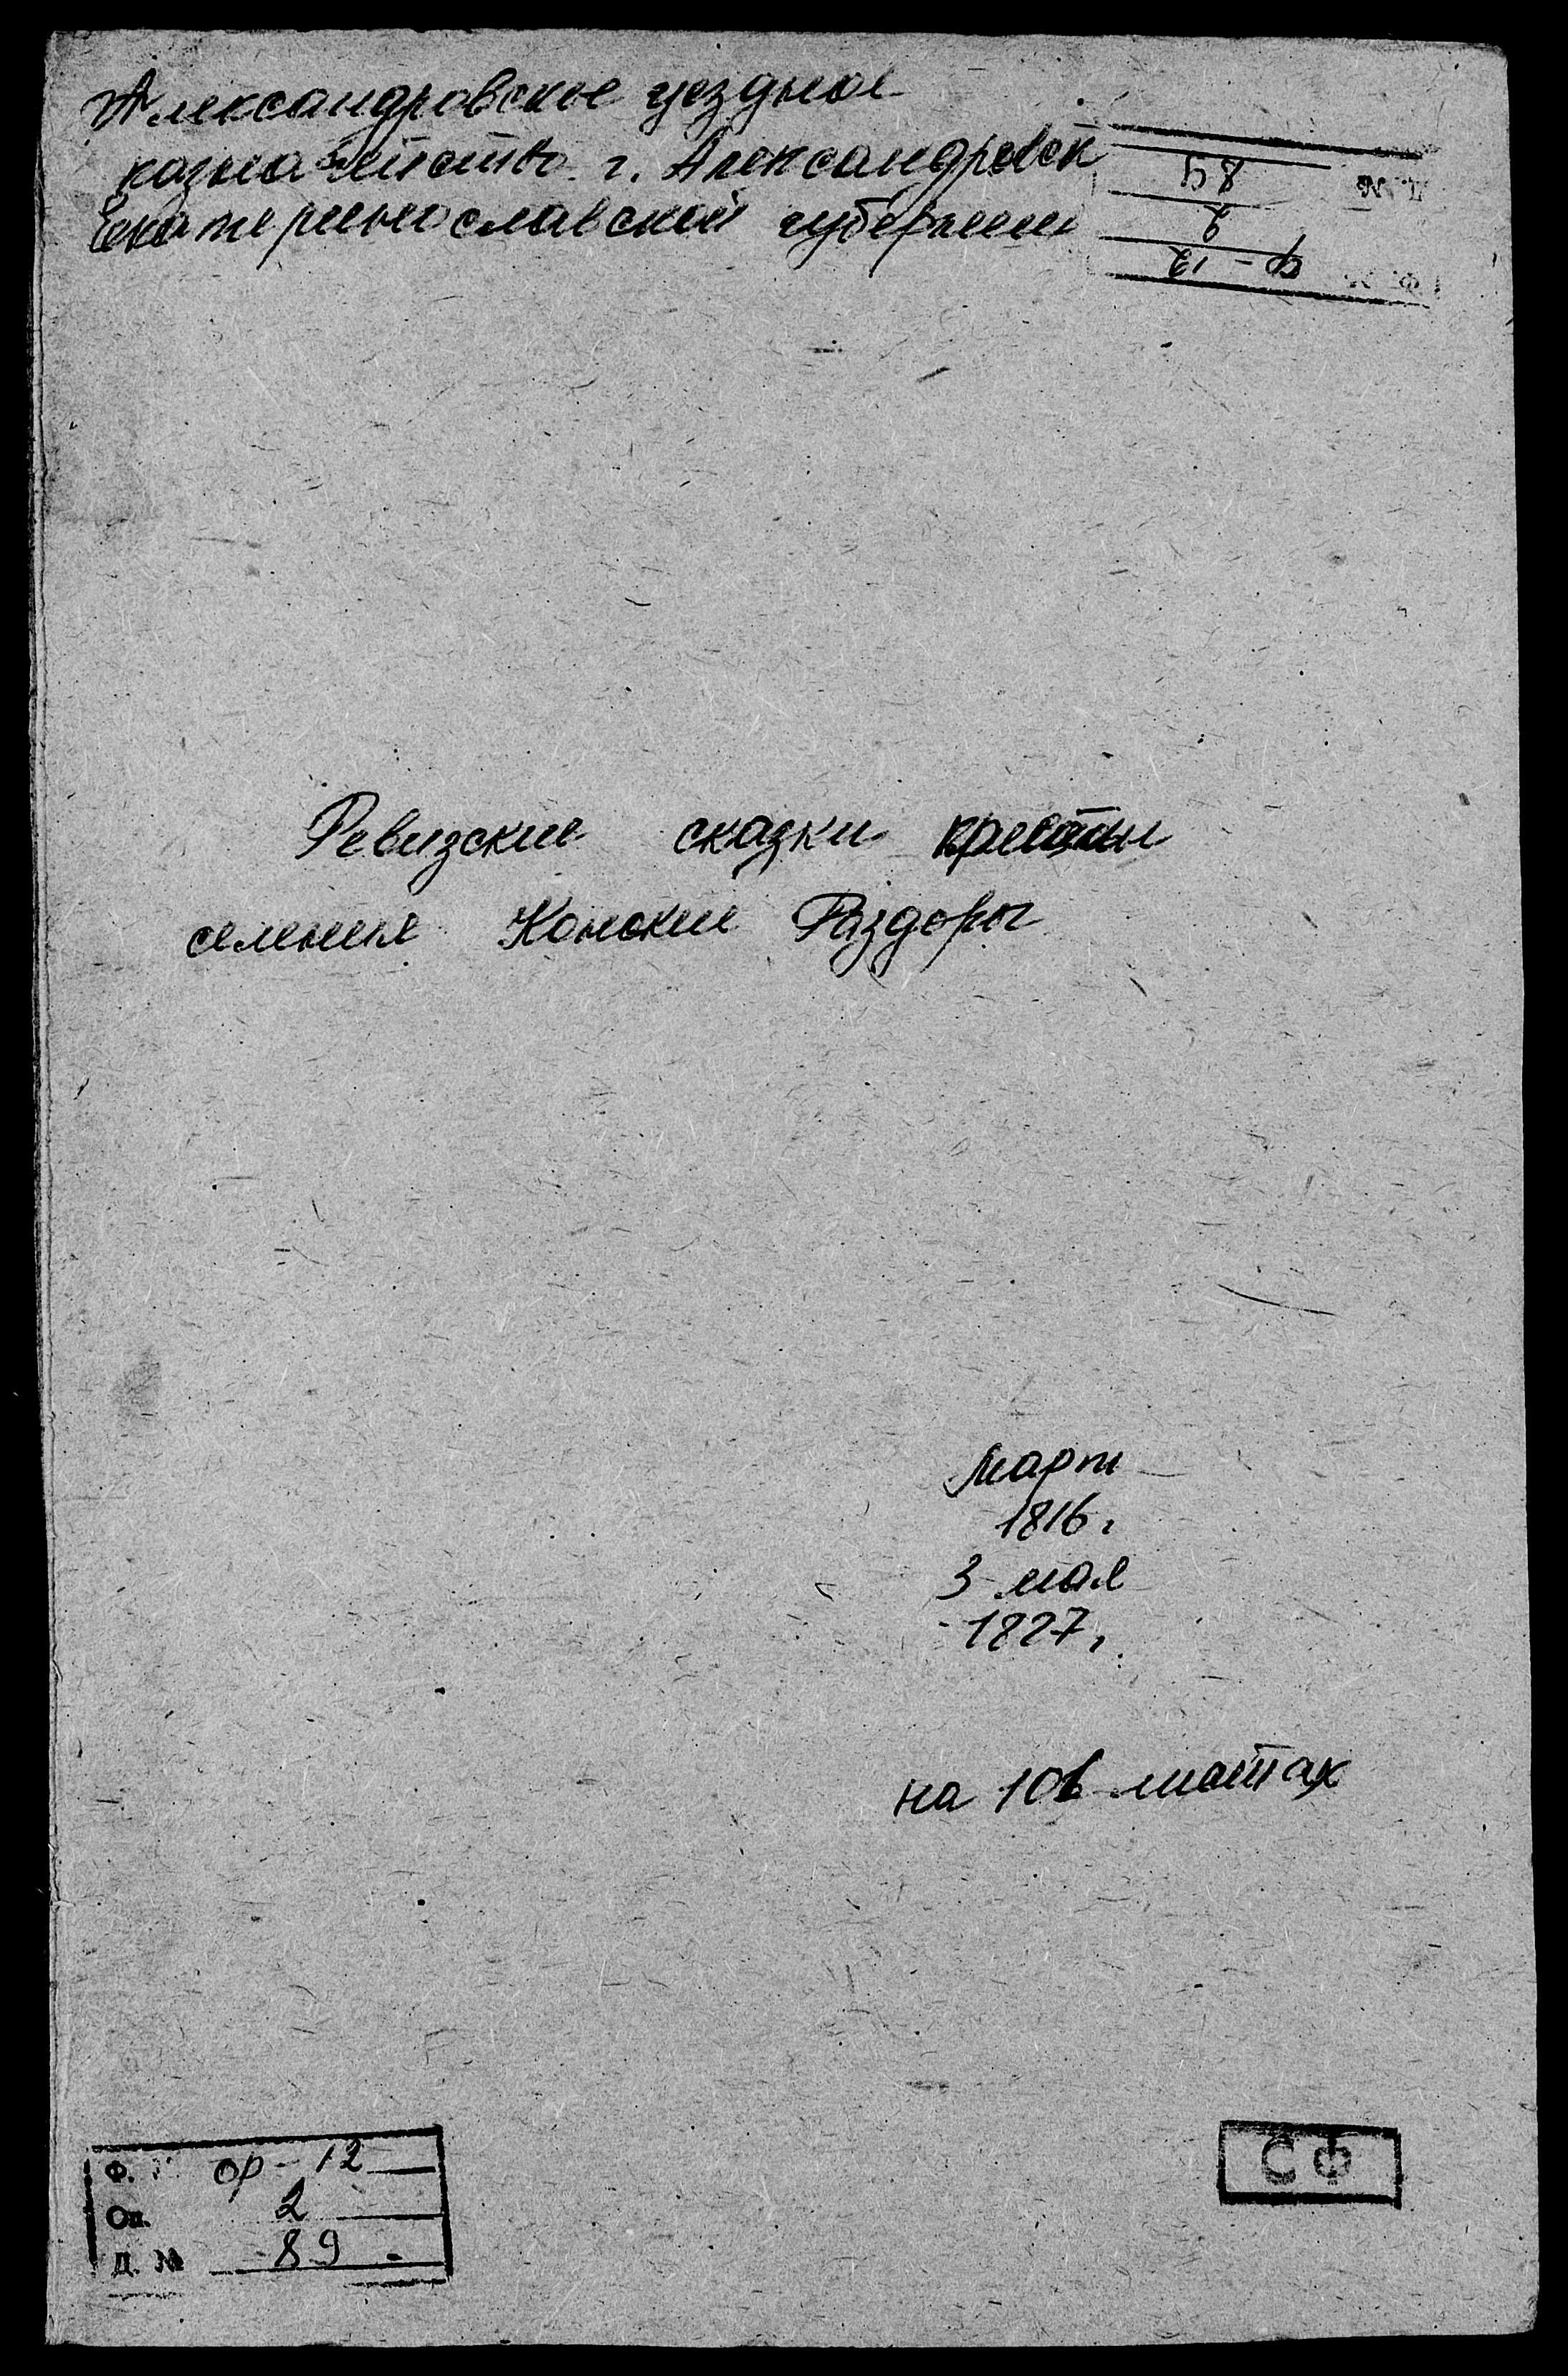 Александровское уездное
казначейство г. Александровск
Екатеринославской губернии
Д. №
89
2
Ф. ф-12
Ревизские сказки крестьян
селения Конские Раздоры
Март
1816 г.
3 мая
1827 г.
на листах
Ф. ф-12
Оп. 2
Д. № 89
СФ